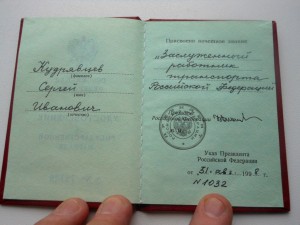 Кудрявцев
(фамилия)
Сергей
(имя)
Иванович
(отчество)
Присвоено почетное звание
„Заслуженный
работник
транспорта
Российской Федерации"
Президент
Российской Федерации
Указ Президента
Российской Федерации
от „31"
199 г.
N 1032